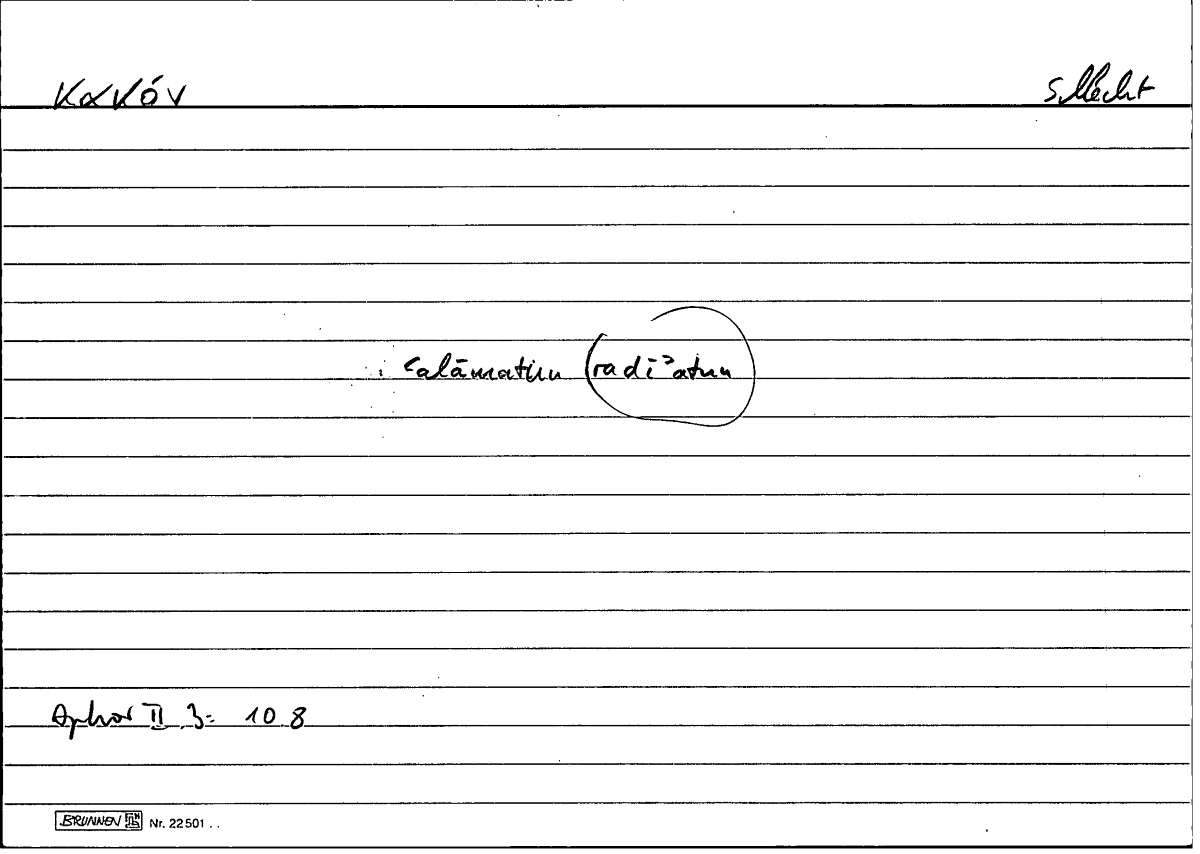 κακόν schlecht
ʿalāmatun (radīʾatun
Aphor II 3 = 10 8
BRUNNEN Nr. 22501 . .